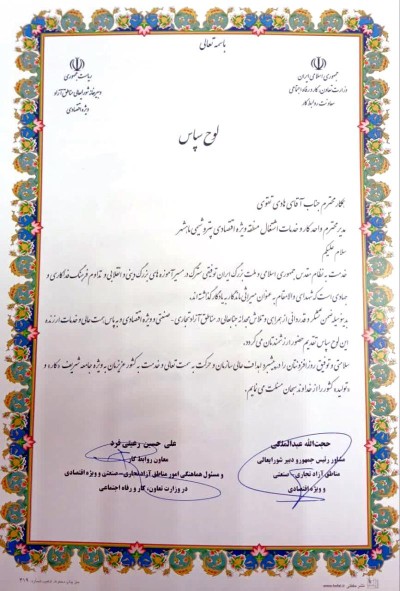 باسمه تعالی
جمهوری اسلامی ایران
وزارت تعاون، کار و رفاه اجتماعی
معاونت روابط کار
ریاست جمهوری
دبیرخانه شورایعالی مناطق آزاد
و ویژه اقتصادی
لوح سپاس
همکار محترم جناب آقای هادی تقوی
مدیر محترم واحد کار و خدمات اشتغال منطقه ویژه اقتصادی پتروشیمی ماهشهر
سلام علیکم
خدمت به نظام مقدس جمهوری اسلامی و ملت بزرگ ایران توفیقی سترگ در مسیر آموزه های بزرگ دینی و انقلابی و تداوم فرهنگ فداکاری و
جهادی است که شهدای والامقام به عنوان میراثی ماندگار به یادگار گذاشته اند.
بدینوسیله ضمن تشکر و قدردانی از همراهی و تلاش مجدانه جنابعالی در مناطق آزاد تجاری - صنعتی و ویژه اقتصادی و به پاس همت عالی و خدمات ارزنده
این لوح سپاس تقدیم حضور ارزشمندتان می گردد.
سلامتی و توفیق روز افزونتان را در پیشبرد اهداف عالی سازمان و حرکت به سمت تعالی و خدمت به کشور عزیزمان به ویژه جامعه شریف «کار» و
«تولید» کشور را از خداوند سبحان مسئلت می نمایم.
حجت‌الله عبدالملکی
مشاور رئیس جمهور و دبیر شورایعالی
مناطق آزاد تجاری - صنعتی
و ویژه اقتصادی
علی حسین رعیتی فرد
معاون روابط کار
و مسئول هماهنگی امور مناطق آزاد تجاری - صنعتی و ویژه اقتصادی
در وزارت تعاون، کار و رفاه اجتماعی